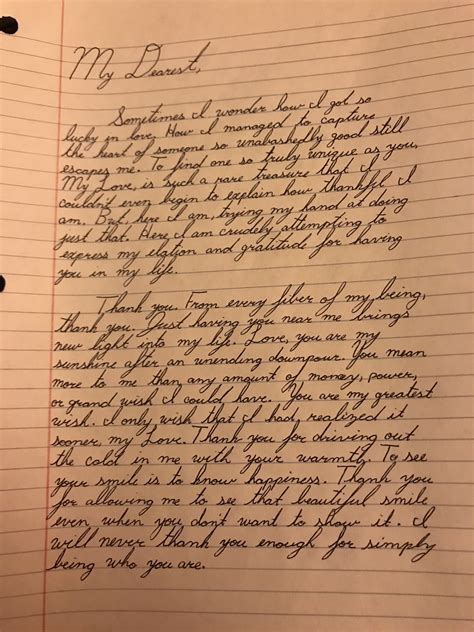 My Dearest,
Sometimes I wonder how I got so
lucky in love. How I managed to capture
the heart of someone so unabashedly good still
escapes me. To find one so truly unique as you,
My Love, is such a rare treasure that I
couldn't even begin to explain how thankful I
am. But, here I am, trying my hand at doing
just that. Here I am crudely attempting to
express my elation and gratitude for having
you in my life.
Thank you. From every fiber of my being,
thank you. Just having you near me brings
new light into my life. Love, you are my
sunshine after an unending downpour. You mean
more to me than any amount of money, power,
or grand wish I could have. You are my greatest
wish. I only wish that I had realized it
sooner, my Love. Thank you for driving out
the cold in me with your warmth. To see
your smile is to know happiness. Thank you
for allowing me to see that beautiful smile
even when you don't want to show it. I
will never thank you enough for simply
being who you are.